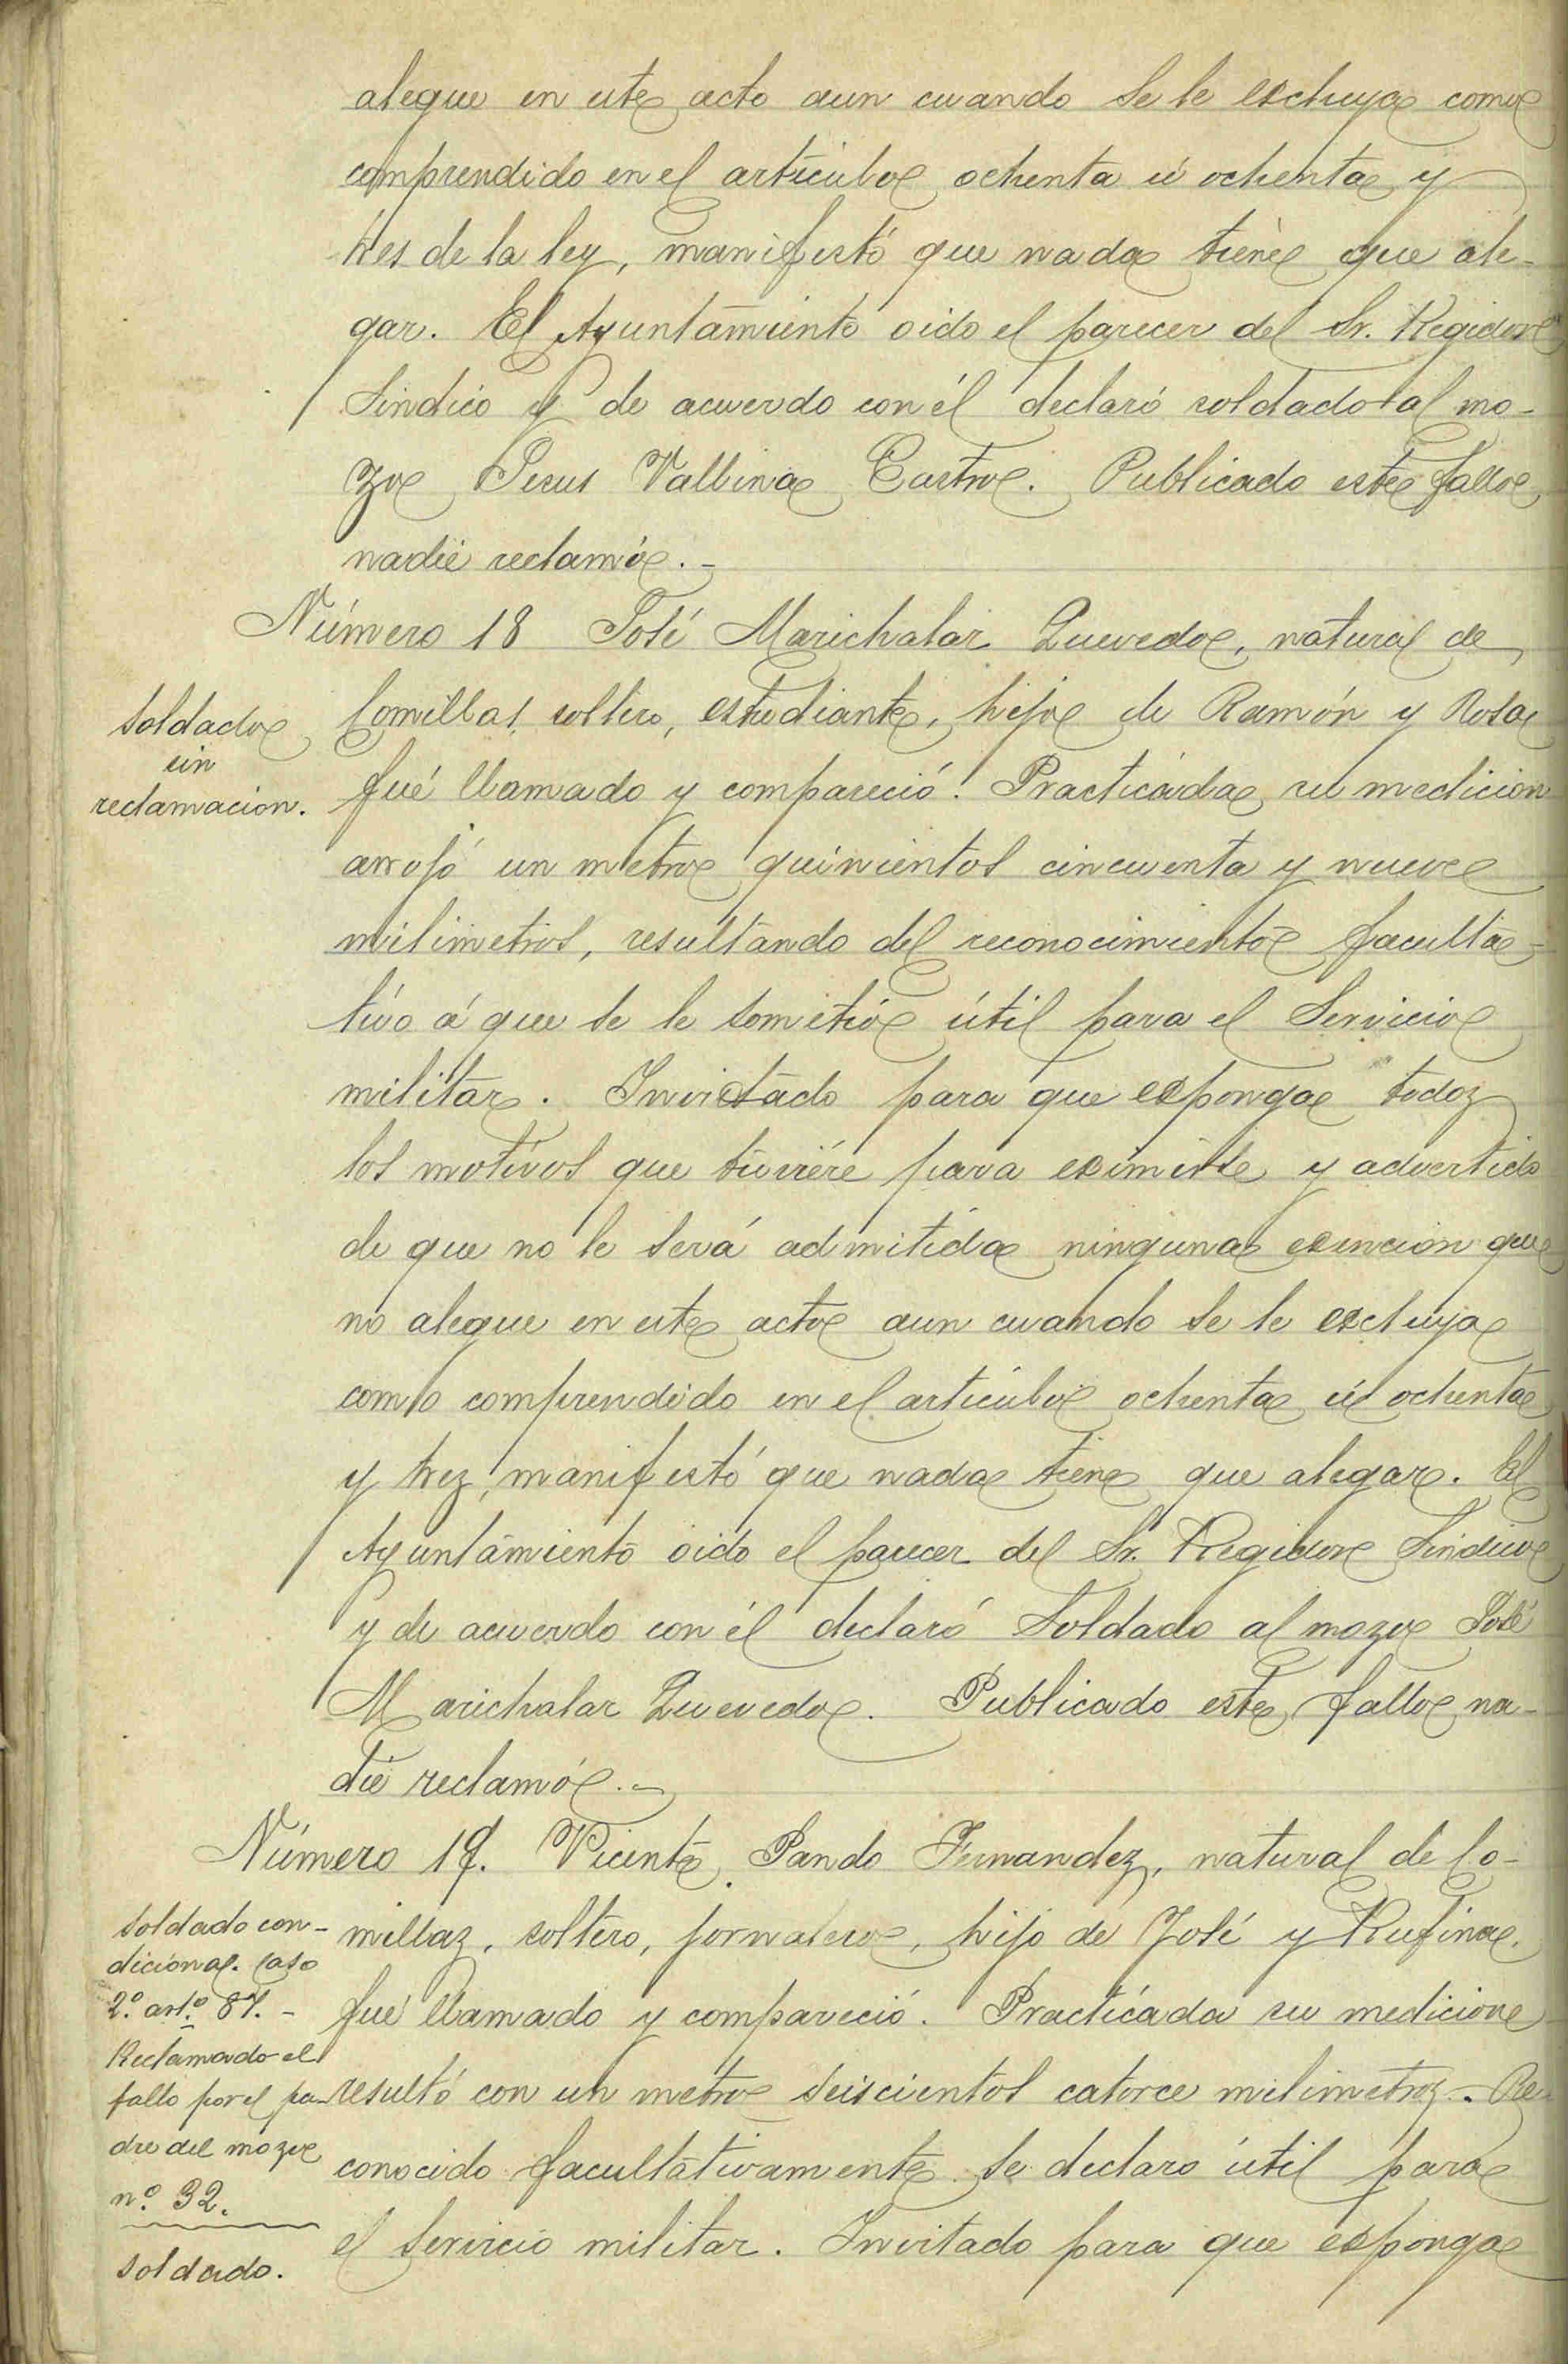 alegue en este acto aun cuando se le escluya como
comprendido en el articulo ochenta ú ochenta y
tres de la ley, manifestó que nada tiene que ale-
gar. El Ayuntamiento oido el parecer del Sr. Regidor
Sindico y de acuerdo con él declaró soldado al mo-
zo Jesus Vallina Castro. Publicado este fallo
nadie reclamó.-
Número 18 José Marichalar Quevedo, natural de
Comillas, soltero, estudiante, hijo de Ramón y Rosa
fué llamado y compareció. Practicada su medicion
arrojó un metro quinientos cincuenta y nueve
milimetros, resultando del reconocimiento faculta-
tivo á que se le sometió útil para el Servicio
militar. Invitado para que esponga todoz
los motivos que tuviére para eximirse y advertido
de que no le será admitida ninguna esencion que
no alegue en este acto aun cuando se le escluya
como comprendido en el articulo ochenta ú ochenta
y trez, manifestó que nada tiene que alegar. El
Ayuntamiento oido el parecer del Sr. Regidor Sindico
y de acuerdo con él declaró Soldado al mozo José
Marichalar Quevedo. Publicado este fallo na-
die reclamó.-
Soldado
sin
reclamacion.
Número 19. Vicente Pando Fernandez, natural de Co-
millaz, soltero, jornalero, hijo de José y Rufina,
fué llamado y compareció. Practicada su medicion
resultó con un metro seiscientos catorce milimetroz. Re-
conocido facultativamente se declaro útil para
el Servicio militar. Invitado para que esponga
Soldado con-
dicional. Caso
2.º art.º 87.-
Reclamado el
fallo por el pa-
dre del mozo
n.º 32.
Soldado.